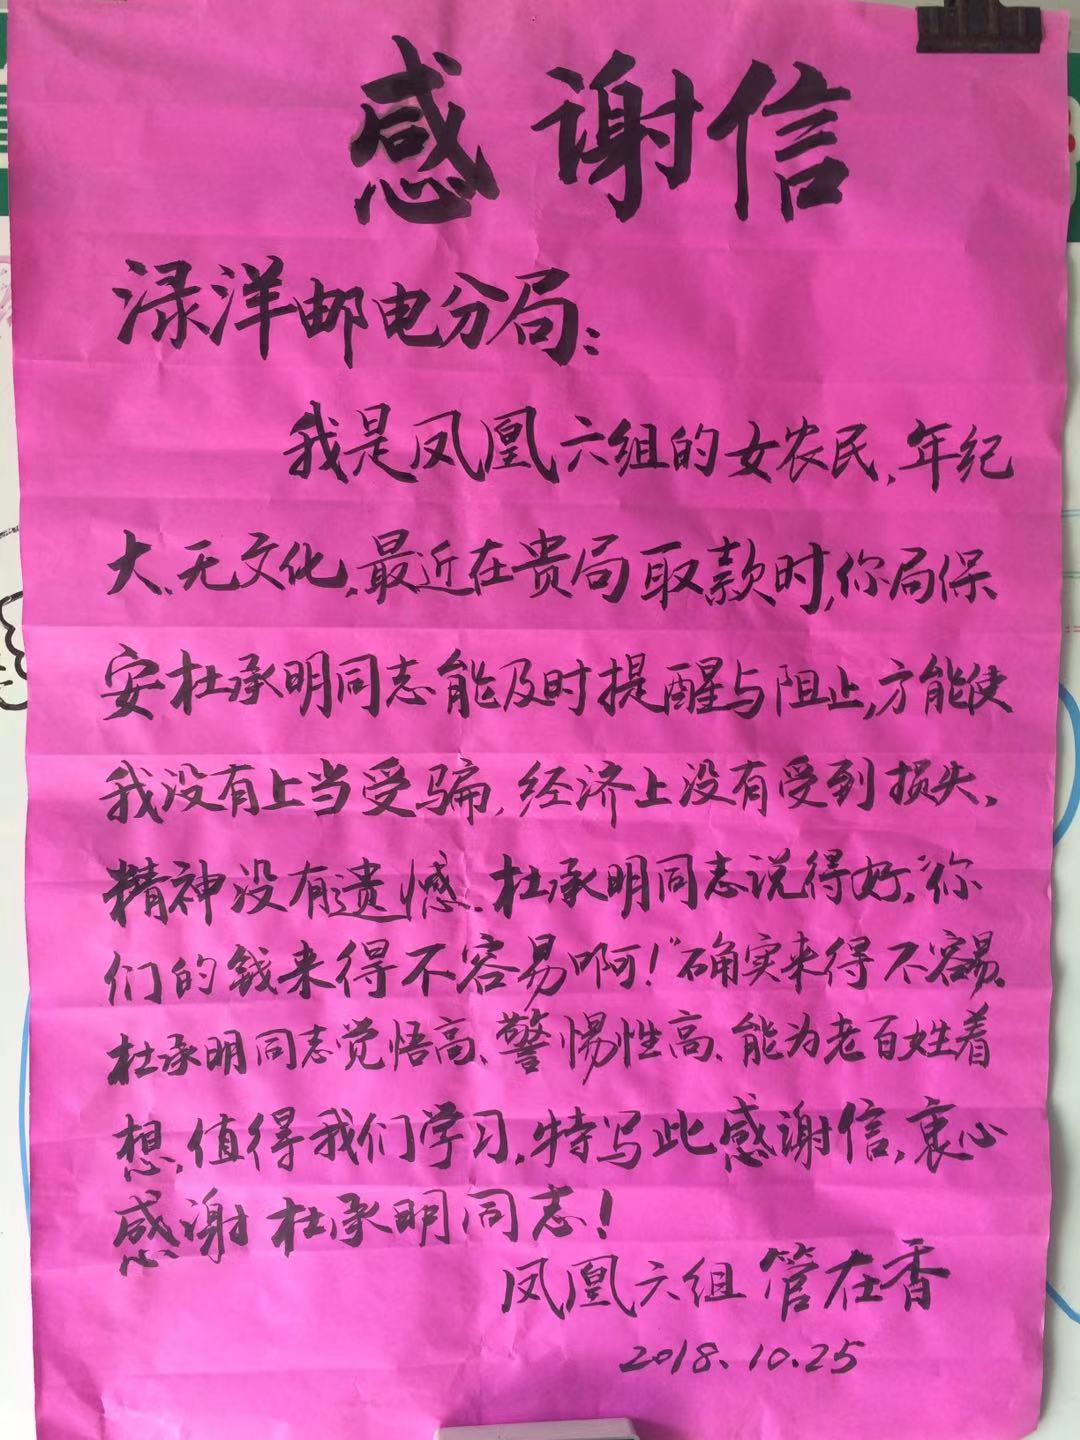 感谢信
渌洋邮电分局：
我是凤凰六组的女农民，年纪
大、无文化，最近在贵局取款时，你局保
安杜承明同志能及时提醒与阻止，方能使
我没有上当受骗，经济上没有受到损失，
精神没有遗憾。杜承明同志说得好，“你
们的钱来得不容易啊！”确实来得不容易。
杜承明同志觉悟高、警惕性高、能为老百姓着
想，值得我们学习，特写此感谢信，衷心
感谢杜承明同志！
凤凰六组 管在香
2018.10.25